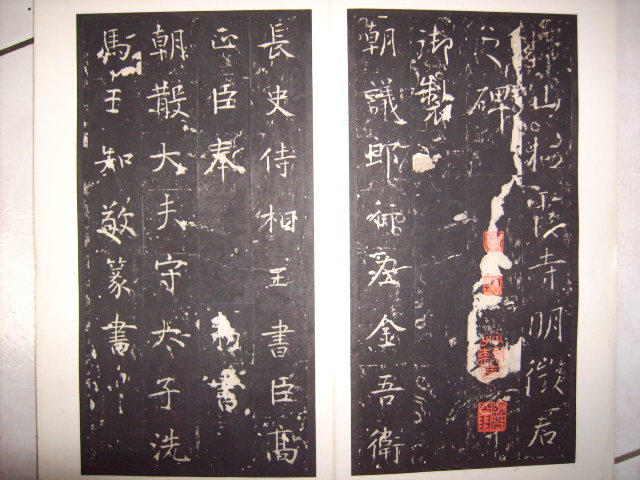 攝山栖霞寺明徵君
之碑
御製
朝議郎行左金吾衛
長史侍相王書臣高
正臣奉 勅書
朝散大夫守太子洗
馬王知敬篆書